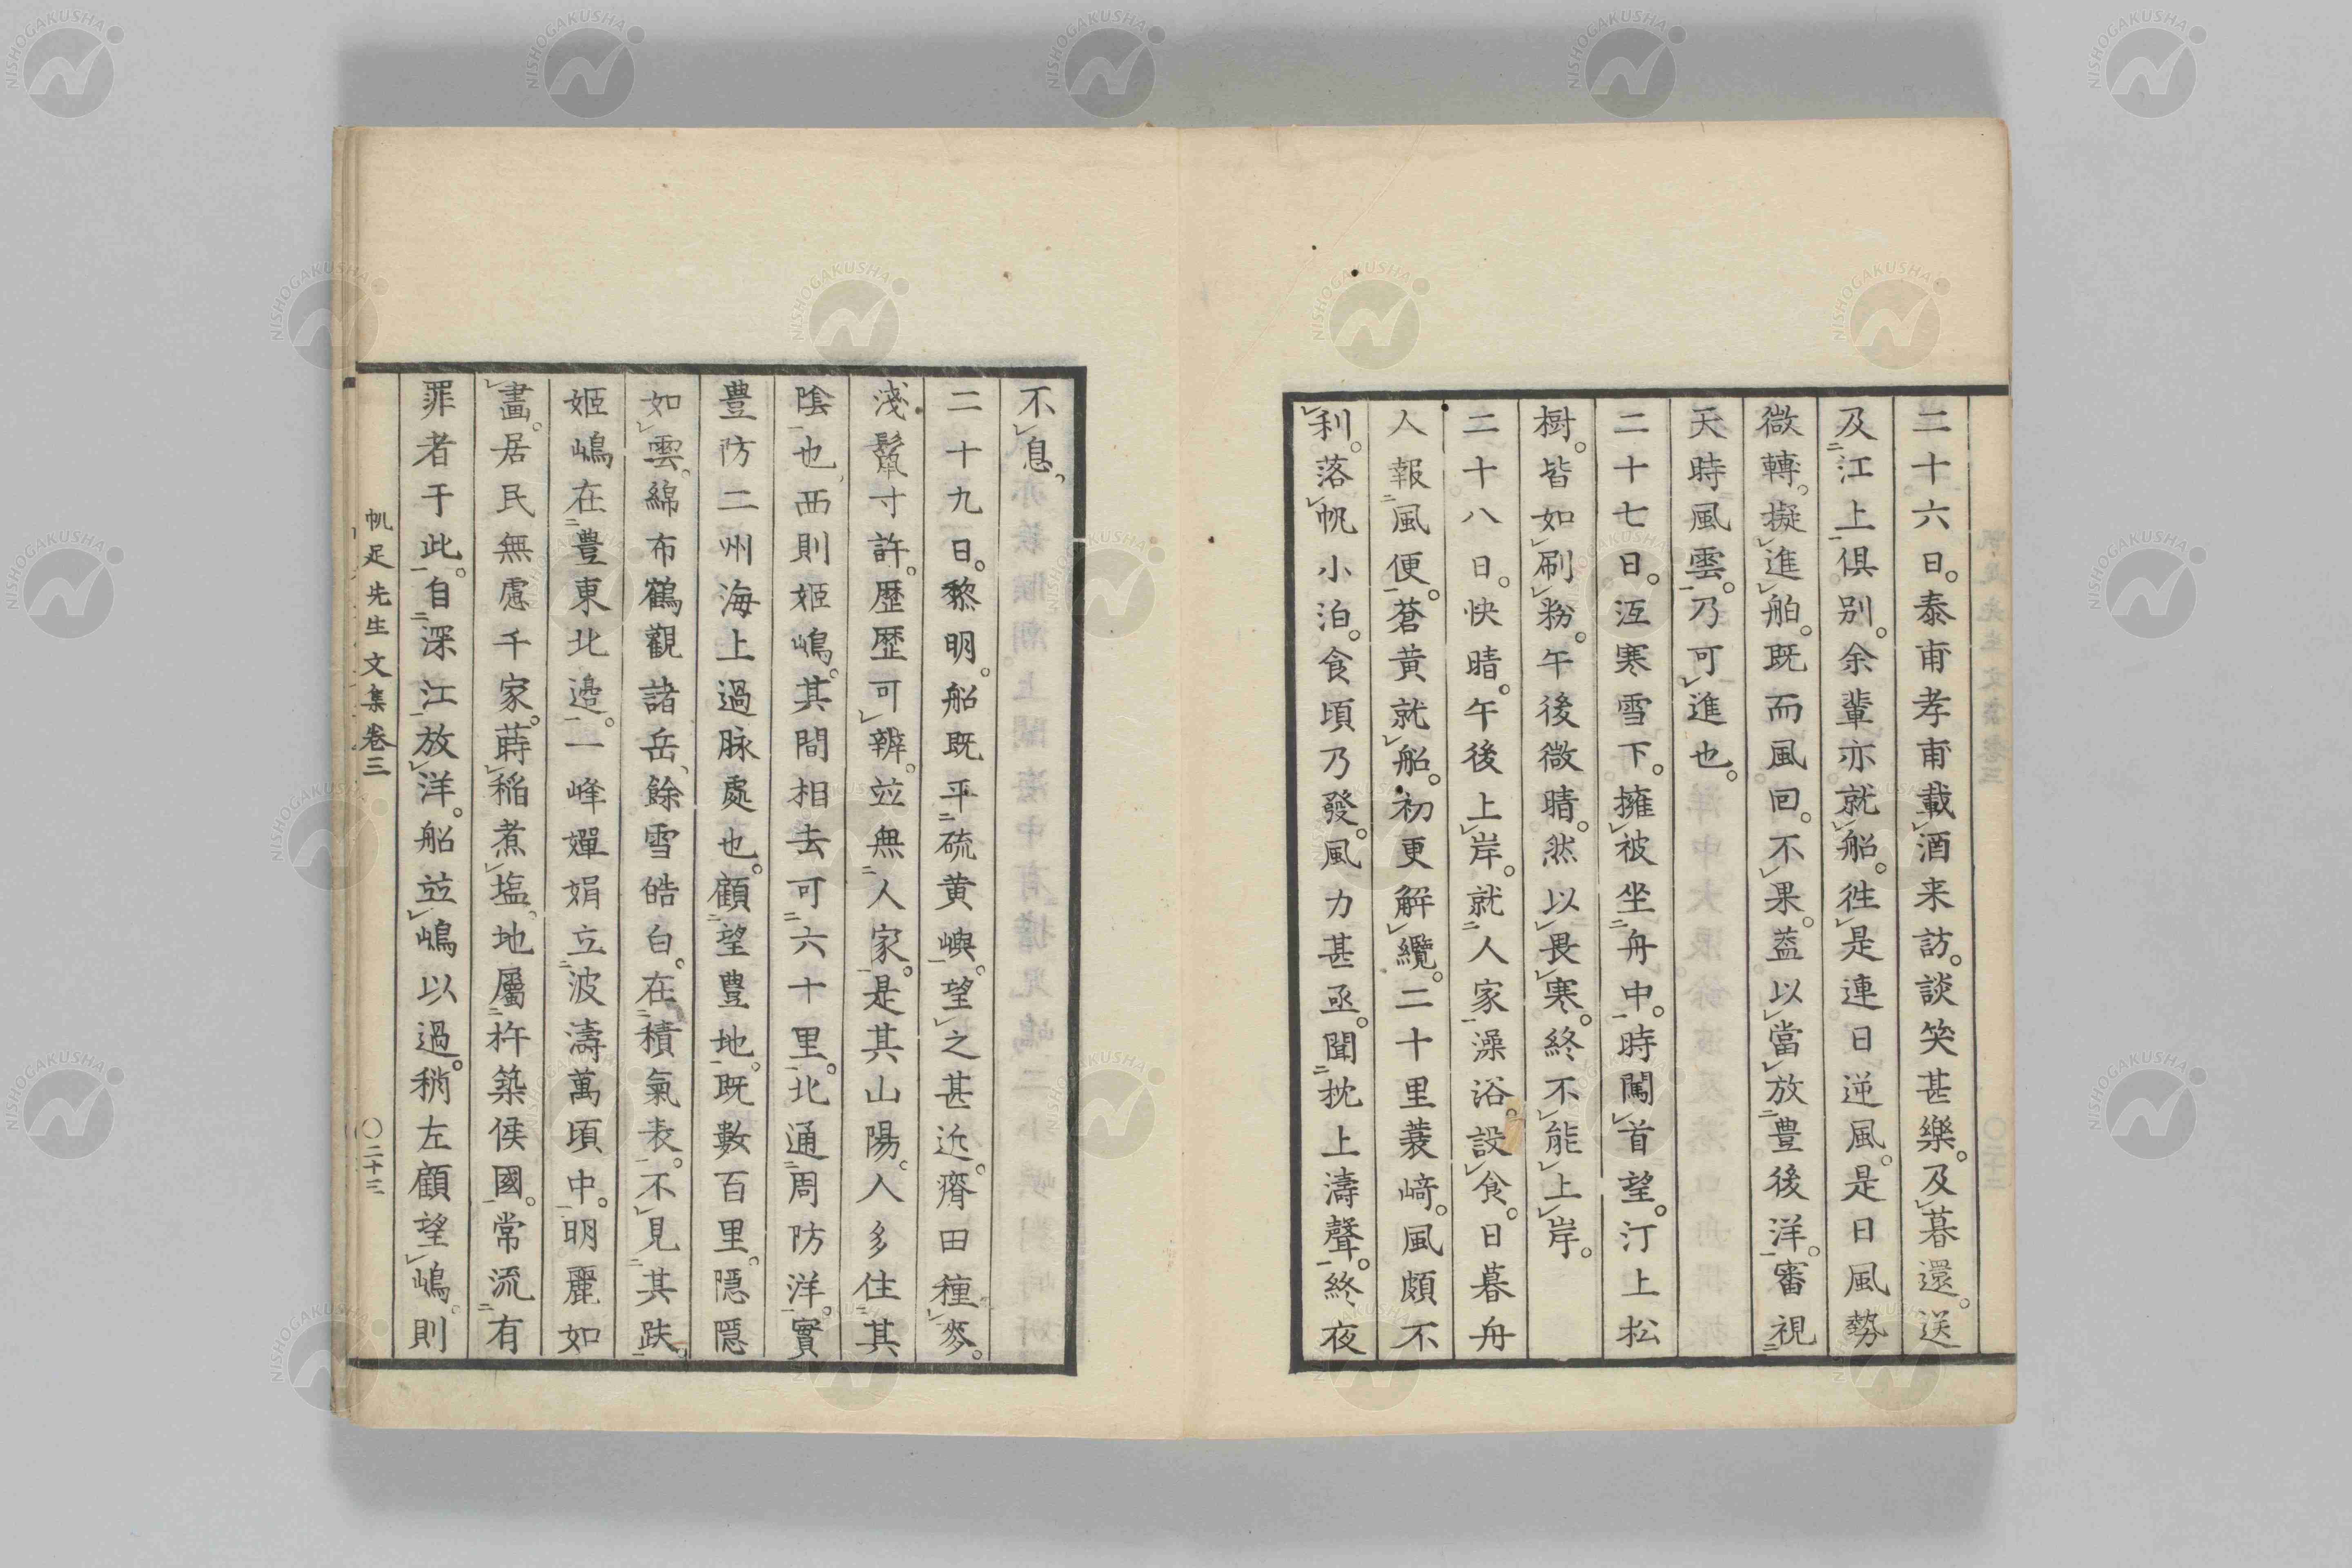 二十六日。泰甫孝甫載酒来訪。談笑甚樂。及暮還。送
及江上俱别。余輩亦就船。徃是連日逆風。是日風勢
微轉。擬進舶。既而風回。不果。葢以當放豊後洋。審視
天時風雲。乃可進也。
二十七日。沍寒雪下。擁被坐舟中。時闖首望。汀上松
樹。皆如刷粉。午後微晴。然以畏寒。終不能上岸。
二十八日。快晴。午後上岸。就人家澡浴。設食。日暮舟
人報風便。蒼黄就船。初更解纜。二十里蓑﨑。風頗不
利。落帆小泊。食頃乃發。風力甚亟。聞枕上濤聲。終夜
不息。
二十九日。黎明。船既平硫黄嶼。望之甚近。瘠田種麥。
淺鬣寸許。歴歴可辨。竝無人家。是其山陽。人多住其
陰也。西則姬嶋。其間相去可六十里。北通周防洋。實
豊防二州海上過脉處也。顧望豊地。既數百里。隠隠
如雲。綿布鶴觀諸岳、餘雪皓白。在積氣表。不見其趺。
姬嶋在豊東北邉。一峰嬋娟立波濤萬頃中。明麗如
畫。居民無慮千家。蒔稲煮塩。地屬杵築侯國。常流有
罪者于此。自深江放洋。船竝嶋以過。稍左顧望嶋。則
帆足先生文集卷三
〇二十三
NISHOGAKUSHA